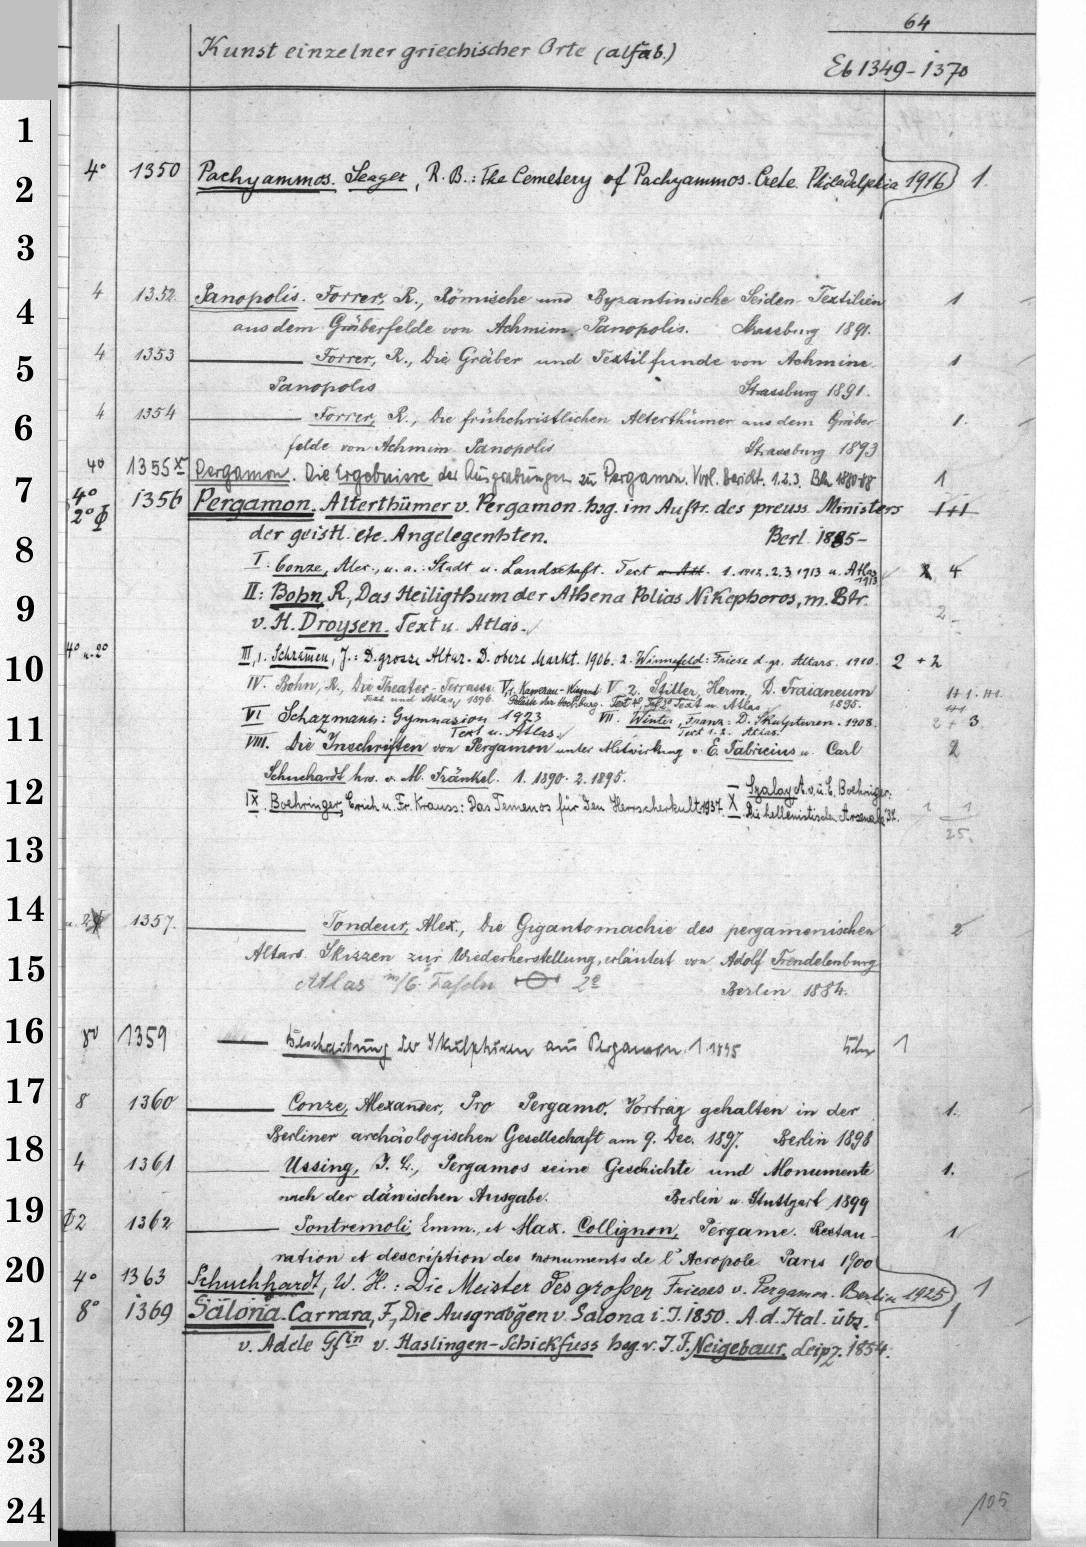 64
Kunst einzelner griechischer Orte (alfab.)
Eb 1349-1370
1
2 4° 1350 Pachyammos. Seager, R. B.: The Cemetery of Pachyammos. Crete. Philadelphia 1916 1.
3
4 4 1352 Panopolis. Forrer, R., Römische und Byzantinische Seiden-Textilien 1
aus dem Gräberfelde von Achmim. Panopolis. Strassburg 1891.
5 4 1353 Forrer, R., Die Gräber und Textilfunde von Achmim 1
Panopolis Strassburg 1891.
6 4 1354 Forrer, R., Die frühchristlichen Alterthümer aus dem Gräber 1.
felde von Achmim Panopolis Strassburg 1893
4° 1355 Pergamon. Die Ergebnisse der Ausgrabungen zu Pergamon. Vorl. Bericht. 1.2.3. Bln 1880-88 1
7 4° 2° 1356 Pergamon. Alterthümer v. Pergamon. hsg. im Auftr. des preuss. Ministers 1+1
8 der geistl. etc. Angelegenhten. Berl. 1885-
I. Conze, Alex., u. a.: Stadt u. Landschaft. Text 1. 1912. 2.3 1913 u. Atlas 1913 4
9 II: Bohn, R, Das Heiligthum der Athena Polias Nikephoros, m. Btr.
v. H. Droysen. Text u. Atlas. 2
10 4° u. 2° III, 1. Schrammen, J.: D. grosse Altar. D. obere Markt. 1906. 2. Winnefeld: Friese d. gr. Altars. 1910. 2 + 2
IV. Bohn, R., Die Theater-Terrasse. V, 1. Kawerau-Wiegand V 2. Stiller, Herm., D. Traianeum 1+1. 1+1.
Text und Atlas, 1896. Paläste der Hochburg. Text u. Atlas 1895.
11 VI Schazmann: Gymnasion 1923 VII. Winter, Franz: D. Skulpturen. 1908. 2 + 3
Text u. Atlas. Text 1. 2. Atlas.
VIII. Die Inschriften von Pergamon unter Mitwirkung v. E. Fabricius u. Carl 2
12 Schuchardt hrs. v. M. Fränkel. 1. 1890. 2. 1895.
IX. Boehringer, Erich u. Fr. Krauss: Das Temenos für den Herrscherkult 1937. X Szalay A. v. u. E. Boehringer:
Die hellenistischen Arsenale 37. 1 1
25.
13
14 1357. Tondeur, Alex., Die Gigantomachie des pergamenischen 2
15 Altars. Skizzen zur Wiederherstellung, erläutert von Adolf Trendelenburg
Atlas m/6 Tafeln 2° Berlin 1884.
16 8° 1359 Beschreibung der Skulpturen aus Pergamon. 1. 1895 Bln 1
17 8 1360 Conze, Alexander, Pro Pergamo. Vortrag gehalten in der 1.
Berliner archäologischen Gesellschaft am 9. Dec. 1897. Berlin 1898
18 4 1361 Ussing, J. L., Pergamos seine Geschichte und Monumente 1.
nach der dänischen Ausgabe. Berlin u. Stuttgart 1899
19 2 1362 Pontremoli Emm., et Max. Collignon, Pergame. Restau- 1
ration et description des monuments de l'Acropole Paris 1900
20 4° 1363 Schuchhardt, W. H.: Die Meister des großen Frieses v. Pergamon. Berlin 1925 1
21 8° 1369 Salona. Carrara, F, Die Ausgrabgen v. Salona i. J. 1850. A. d. Ital. übs. 1
v. Adele Gfin v. Haslingen-Schickfuss hsg. v. J. F. Neigebaur, Leipz. 1854.
22
23
24
105